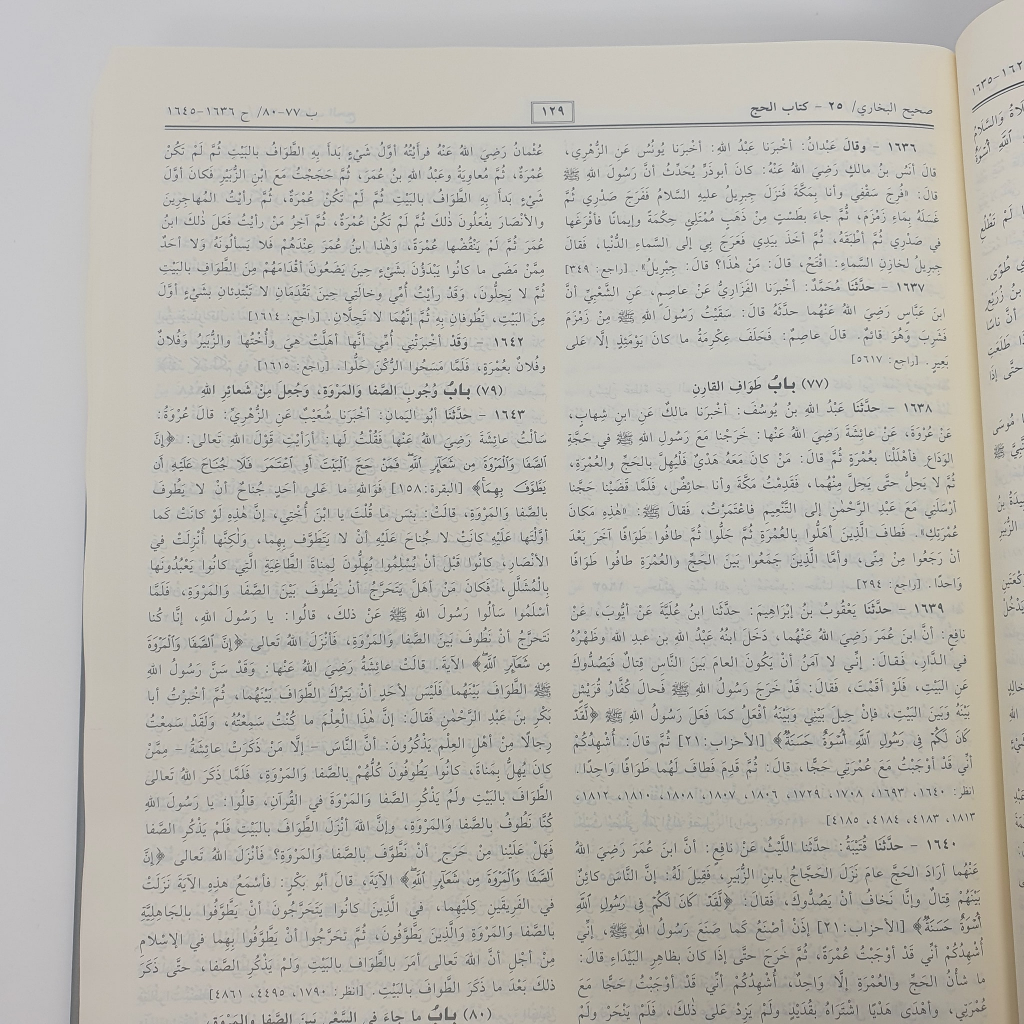 صحيح البخاري/ ٢٥ - كتاب الحج
١٢٩
ب ٧٧-٨٠/ ح ١٦٣٦-١٦٤٥
١٦٣٦ - وقالَ عَبْدانُ: أخْبَرَنا عَبْدُ اللهِ: أخْبَرَنا يُونُس عَنِ الزُّهْرِي،
قالَ أنَسُ بنُ مالكٍ رَضِيَ اللهُ عَنْهُ: كانَ أبوذَرٍّ يُحَدِّثُ أنَّ رَسُولَ اللهِ ﷺ
قالَ: «فُرِجَ سَقْفِي وأنا بِمَكَّةَ فَنزَلَ جِبرِيلُ عليهِ السَّلامُ فَفَرَجَ صَدْرِي ثُمَّ
غَسَلَهُ بِماءِ زَمْزَمَ، ثُمَّ جاءَ بِطَسْتٍ مِنْ ذَهَبٍ مُمْتَلِئٍ حِكْمَةً وإيمانًا فأفْرَغَها
في صَدْرِي ثُمَّ أطْبَقَهُ، ثُمَّ أخَذَ بِيَدِي فَعَرَجَ بِي إلى السَّماءِ الدُّنْيا، فَقالَ
جِبرِيلُ لخازِنِ السَّماءِ: افْتَحْ، قالَ: مَنْ هٰذَا؟ قالَ: جِبْرِيلُ». [راجع: ٣٤٩]
١٦٣٧ - حدَّثَنا مُحَمَّدٌ: أخْبَرَنا الفَزَارِيُّ عَنْ عاصِمٍ، عَنِ الشَّعْبِيِّ أنَّ
ابنَ عَبَّاسٍ رَضِيَ اللهُ عَنْهُما حدَّثَهُ قال: سَقَيْتُ رَسُولَ اللهِ ﷺ مِنْ زَمْزَمَ
فَشَرِبَ وَهُوَ قائمٌ. قالَ عاصِمٌ: فَحَلَفَ عِكْرِمَةُ ما كانَ يَوْمَئِذٍ إلَّا عَلى
بَعِيرٍ. [راجع: ٥٦١٧]
(٧٧) بابُ طَوَافِ القارِنِ
١٦٣٨ - حدَّثَنا عَبْدُ اللهِ بنُ يُوسُفَ: أخْبَرَنا مالكٌ عَنِ ابنِ شِهابٍ،
عَنْ عُرْوَةَ، عَنْ عائِشَةَ رَضِيَ اللهُ عَنْها: خَرَجْنا مَعَ رَسُولِ اللهِ ﷺ في حَجَّةِ
الوَدَاعِ فأهْلَلْنا بعُمْرَةٍ ثُمَّ قالَ: مَنْ كانَ مَعَهُ هَدْيٌ فَلْيُهِلَّ بالحَجِّ والعُمْرَةِ،
ثُمَّ لا يَحِلُّ حتَّى يَحِلَّ مِنْهُما، فَقَدِمْتُ مَكَّةَ وأنا حائِضٌ، فَلَمَّا قَضَيْنا حَجَّنا
أرْسَلَنِي مَعَ عَبْدِ الرَّحْمٰنِ إلى التَّنْعِيمِ فاعْتَمَرْتُ، فَقالَ ﷺ: «هٰذِهِ مَكانَ
عُمْرَتِكِ». فَطافَ الَّذِينَ أهَلُّوا بالعُمْرَةِ ثُمَّ حَلُّوا ثُمَّ طافُوا طَوَافًا آخَرَ بَعْدَ
أنْ رَجَعُوا مِنْ مِنًى، وأمَّا الَّذِينَ جَمَعُوا بَينَ الحَجِّ والعُمْرَةِ طافُوا طَوَافًا
وَاحدًا. [راجع: ٢٩٤]
١٦٣٩ - حدَّثَنا يَعْقُوبُ بنُ إبْرَاهِيمَ: حدَّثَنا ابنُ عُلَيَّةَ عَنْ أيُّوبَ، عَنْ
نافِعٍ: أنَّ ابنَ عُمَرَ رَضِيَ اللهُ عَنْهُما، دَخَلَ ابنُهُ عَبْدُ اللهِ بن عبدِ اللهِ وظَهْرُهُ
في الدَّارِ، فَقالَ: إنِّي لا آمَنُ أنْ يَكُونَ العامَ بَينَ النَّاسِ قِتالٌ فَيَصُدُّوكَ
عَنِ البَيْتِ، فَلَوْ أقَمْتَ، فَقالَ: قَدْ خَرَجَ رَسُولُ اللهِ ﷺ فَحالَ كُفَّارُ قُرَيْشٍ
بَيْنَهُ وَبَينَ البَيْتِ، فإنْ حِيلَ بَيْنِي وبَيْنَهُ أفْعَلُ كما فَعَلَ رَسُولُ اللهِ ﷺ ﴿لَّقَدْ
كَانَ لَكُمْ فِى رَسُولِ ٱللَّهِ أُسْوَةٌ حَسَنَةٌ﴾ [الأحزاب:٢١] ثُمَّ قالَ: أُشْهِدُكُمْ
أنِّي قَدْ أوْجَبْتُ مَعَ عُمْرَتِي حَجًّا، قالَ: ثُمَّ قَدِمَ فَطافَ لَهُما طَوَافًا وَاحِدًا.
انظر: ١٦٤٠، ١٦٩٣، ١٧٠٨، ١٧٢٩، ١٨٠٦، ١٨٠٧، ١٨٠٨، ١٨١٠، ١٨١٢،
١٨١٣، ٤١٨٣، ٤١٨٤، ٤١٨٥]
١٦٤٠ - حدَّثَنا قُتَيْبَةُ: حدَّثَنا اللَّيْثُ عَنْ نافِعٍ: أنَّ ابنَ عُمَرَ رَضِيَ اللهُ
عَنْهُما أرَادَ الحَجَّ عامَ نَزَلَ الحَجَّاجُ بابنِ الزُّبَيرِ، فَقِيلَ لَهُ: إنَّ النَّاسَ كائِنٌ
بَيْنَهُمْ قِتالٌ وإنَّا نَخافُ أنْ يَصُدُّوكَ، فَقالَ: ﴿لَّقَدْ كَانَ لَكُمْ فِى رَسُولِ ٱللَّهِ
أُسْوَةٌ حَسَنَةٌ﴾ [الأحزاب:٢١] إذَنْ أصْنَعُ كَما صَنَعَ رَسُولُ اللهِ ﷺ، إنِّي
أُشْهِدُكُمْ أنِّي قَدْ أوْجَبْتُ عُمْرَةً، ثُمَّ خَرَجَ حتَّى إذَا كانَ بظاهِرِ البَيْدَاءِ قالَ:
ما شأْنُ الحَجِّ والعُمْرَةِ إلَّا وَاحِدٌ، أُشْهِدُكُمْ أنِّي قَدْ أوْجَبْتُ حَجًّا مَعَ
عُمْرَتِي، وأهْدَى هَدْيًا اشْتَرَاهُ بقُدَيْدٍ وَلَمْ يَزِدْ عَلى ذٰلكَ، فَلَمْ يَنْحَرْ وَلَمْ
عُثْمانُ رَضِيَ اللهُ عَنْهُ فرأيْتُهُ أوَّلُ شَيْءٍ بَدأَ بِهِ الطَّوَافُ بالبَيْتِ ثُمَّ لَمْ تَكُنْ
عُمْرَةً، ثُمَّ مُعاوِيَةُ وعَبْدُ اللهِ بنُ عُمَرَ، ثُمَّ حَجَجْتُ مَعَ ابْنِ الزُّبَيْرِ فَكانَ أوَّلَ
شَيْءٍ بَدأَ بِهِ الطَّوَافُ بالبَيْتِ ثُمَّ لَمْ تَكُنْ عُمْرَةً، ثُمَّ رأيْتُ المُهاجِرِينَ
والأنْصَارَ يفْعَلُونَ ذٰلكَ ثُمَّ لَمْ تَكُنْ عُمْرَةً، ثُمَّ آخِرُ مَنْ رأيْتُ فَعلَ ذٰلكَ ابنُ
عُمَرَ ثُمَّ لَمْ يَنْقُضْها عُمْرَةً، وَهٰذا ابنُ عُمَرَ عِنْدَهُمْ فَلا يَسألُونَهُ وَلا أحَدٌ
مِمَّنْ مَضَى ما كانُوا يَبْدَؤُنَ بشَيْءٍ حِينَ يَضَعُونَ أقْدَامَهُمْ مِنَ الطَّوَافِ بالبَيْتِ
ثُمَّ لا يَحِلُّونَ، وَقَدْ رأيْتُ أُمِّي وخالَتِي حِينَ تَقْدَمَانِ لا تَبْتَدِئانِ بشَيْءٍ أوَّلَ
مِنَ البَيْتِ، تَطُوفانِ بِهِ ثُمَّ إنَّهُما لا تَحِلَّانِ. [راجع: ١٦١٤]
١٦٤٢ - وَقَدْ أخبَرَتْنِي أُمِّي أنَّها أهَلَّتْ هيَ وأُخْتُها والزُّبَيرُ وَفُلانٌ
وفُلانٌ بعُمْرَةٍ، فَلَمَّا مَسَحُوا الرُّكْنَ حَلُّوا. [راجع: ١٦١٥]
(٧٩) بابُ وُجُوبِ الصَّفا وَالمَرْوَةِ، وَجُعِلَ مِنْ شَعائرِ اللهِ
١٦٤٣ - حدَّثَنا أبُو اليَمَانِ: أخْبَرَنا شُعَيْبٌ عَنِ الزُّهْرِيِّ: قالَ عُرْوَةُ:
سَألْتُ عائِشَةَ رَضِيَ اللهُ عَنْها فَقُلْتُ لها: أرَأيْتِ قَوْلَ اللهِ تَعالى: ﴿إِنَّ
ٱلصَّفَا وَٱلْمَرْوَةَ مِن شَعَآئِرِ ٱللَّهِ فَمَنْ حَجَّ ٱلْبَيْتَ أَوِ ٱعْتَمَرَ فَلَا جُنَاحَ عَلَيْهِ أَن
يَطَّوَّفَ بِهِمَا﴾ [البقرة:١٥٨] فَوَاللهِ ما عَلى أحَدٍ جُناحٌ أنْ لا يَطُوفَ
بالصَّفا والمَرْوَةِ، قالَتْ: بِئسَ ما قُلْتَ يا ابْنَ أُخْتِي، إنَّ هٰذِهِ لَوْ كانَتْ كما
أوَّلْتَها عَلَيْهِ كانَتْ لا جُناحَ عَلَيْهِ أنْ لا يَتَطَوَّفَ بِهِما، وَلَكِنَّها أُنْزِلَتْ في
الأنْصارِ، كانُوا قَبْلَ أنْ يُسْلِمُوا يُهِلُّونَ لِمناةَ الطَّاغِيَةِ الَّتي كانُوا يَعْبُدُونَها
بِالْمُشَلَّلِ، فَكانَ مَنْ أهَلَّ يَتَحَرَّجُ أنْ يَطُوفَ بَيْنَ الصَّفا وَالمَرْوَةِ، فَلَمَّا
أسْلَمُوا سَألُوا رَسُولَ اللهِ ﷺ عَنْ ذلكَ، قالُوا: يا رَسُولَ اللهِ، إنَّا كُنا
نَتَحرَّجُ أنْ نَطُوفَ بَينَ الصَّفا والمَرْوَةِ، فَأنْزَلَ اللهُ تَعالى ﴿إِنَّ ٱلصَّفَا وَٱلْمَرْوَةَ
مِن شَعَآئِرِ ٱللَّهِ﴾ الآيَةَ. قالَتْ عائِشَةُ رَضِيَ اللهُ عَنْها: وَقَدْ سَنَّ رَسُولُ اللهِ
ﷺ الطَّوَافَ بَيْنَهُما فَلَيْسَ لأحَدٍ أنْ يَتْرُكَ الطَّوَافَ بَيْنَهُما، ثُمَّ أخْبَرْتُ أبا
بَكْرِ بنَ عَبْدِ الرَّحْمٰنِ فَقالَ: إنَّ هٰذَا الْعِلْمَ ما كُنْتُ سَمِعْتُهُ، وَلَقَدْ سَمِعْتُ
رِجالًا مِنْ أهْلِ العِلْمِ يَذْكُرُونَ: أنَّ النَّاسَ - إلَّا مَنْ ذَكَرَتْ عائِشَةُ - مِمَّنْ
كانَ يُهِلُّ بِمَناةَ، كانُوا يَطُوفُونَ كُلُّهُمْ بالصَّفا والمَرْوَةِ، فَلَمَّا ذَكَرَ اللهُ تَعالى
الطَّوَافَ بالبَيْتِ وَلَمْ يَذْكُرِ الصَّفا والمَرْوَةَ في القُرآنِ، قالُوا: يا رَسُولَ اللهِ
كُنَّا نَطُوفُ بالصَّفا والمَرْوَةِ، وإنَّ اللهَ أنْزَلَ الطَّوَافَ بالبَيْتِ فَلَمْ يَذْكُرِ الصَّفا
فَهَلْ عَلَيْنا مِنْ حَرَجٍ أنْ نَطَّوَّفَ بالصَّفا والمَرْوَةِ؟ فأنْزَلَ اللهُ تَعالى ﴿إِنَّ
ٱلصَّفَا وَٱلْمَرْوَةَ مِن شَعَآئِرِ ٱللَّهِ﴾ الآيَةَ، قالَ أبُو بَكْرٍ: فأسْمَعُ هذِهِ الآيَةَ نَزَلَتْ
في الفَرِيقَينِ كِلَيْهِما، في الَّذِينَ كانُوا يَتَحَرَّجُونَ أنْ يَطَّوَّفُوا بالجَاهِلِيَّةِ
بالصَّفا والمَرْوَةِ والَّذِينَ يَطَّوَّفُونَ، ثُمَّ تَحَرَّجُوا أنْ يَطَّوَّفُوا بِهِما في الإسْلامِ
مِنْ أجْلِ أنَّ اللهَ تَعالى أمَرَ بالطَّوَافِ بالبَيْتِ وَلمْ يَذْكُرِ الصَّفا، حتَّى ذَكَرَ
ذلكَ بَعْدَ ما ذَكَرَ الطَّوَافَ بالبَيْتِ. [انظر: ١٧٩٠، ٤٤٩٥، ٤٨٦١]
(٨٠) بابُ ما جاءَ في السَّعْيِ بَينَ الصَّفا والمَرْوَةِ،